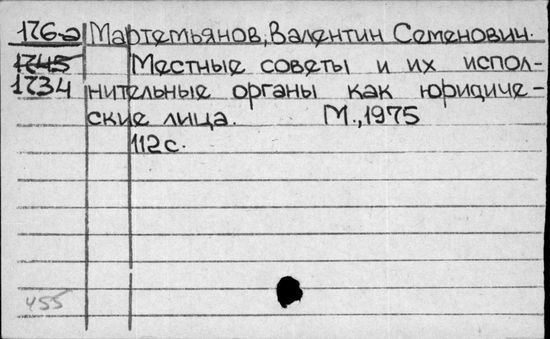 176-а Мартемьянов, Валентин Семенович.
1745 Местные советы и их испол-
1734 нительные органы как юридиче-
ские лица. М., 1975
112 с.
455